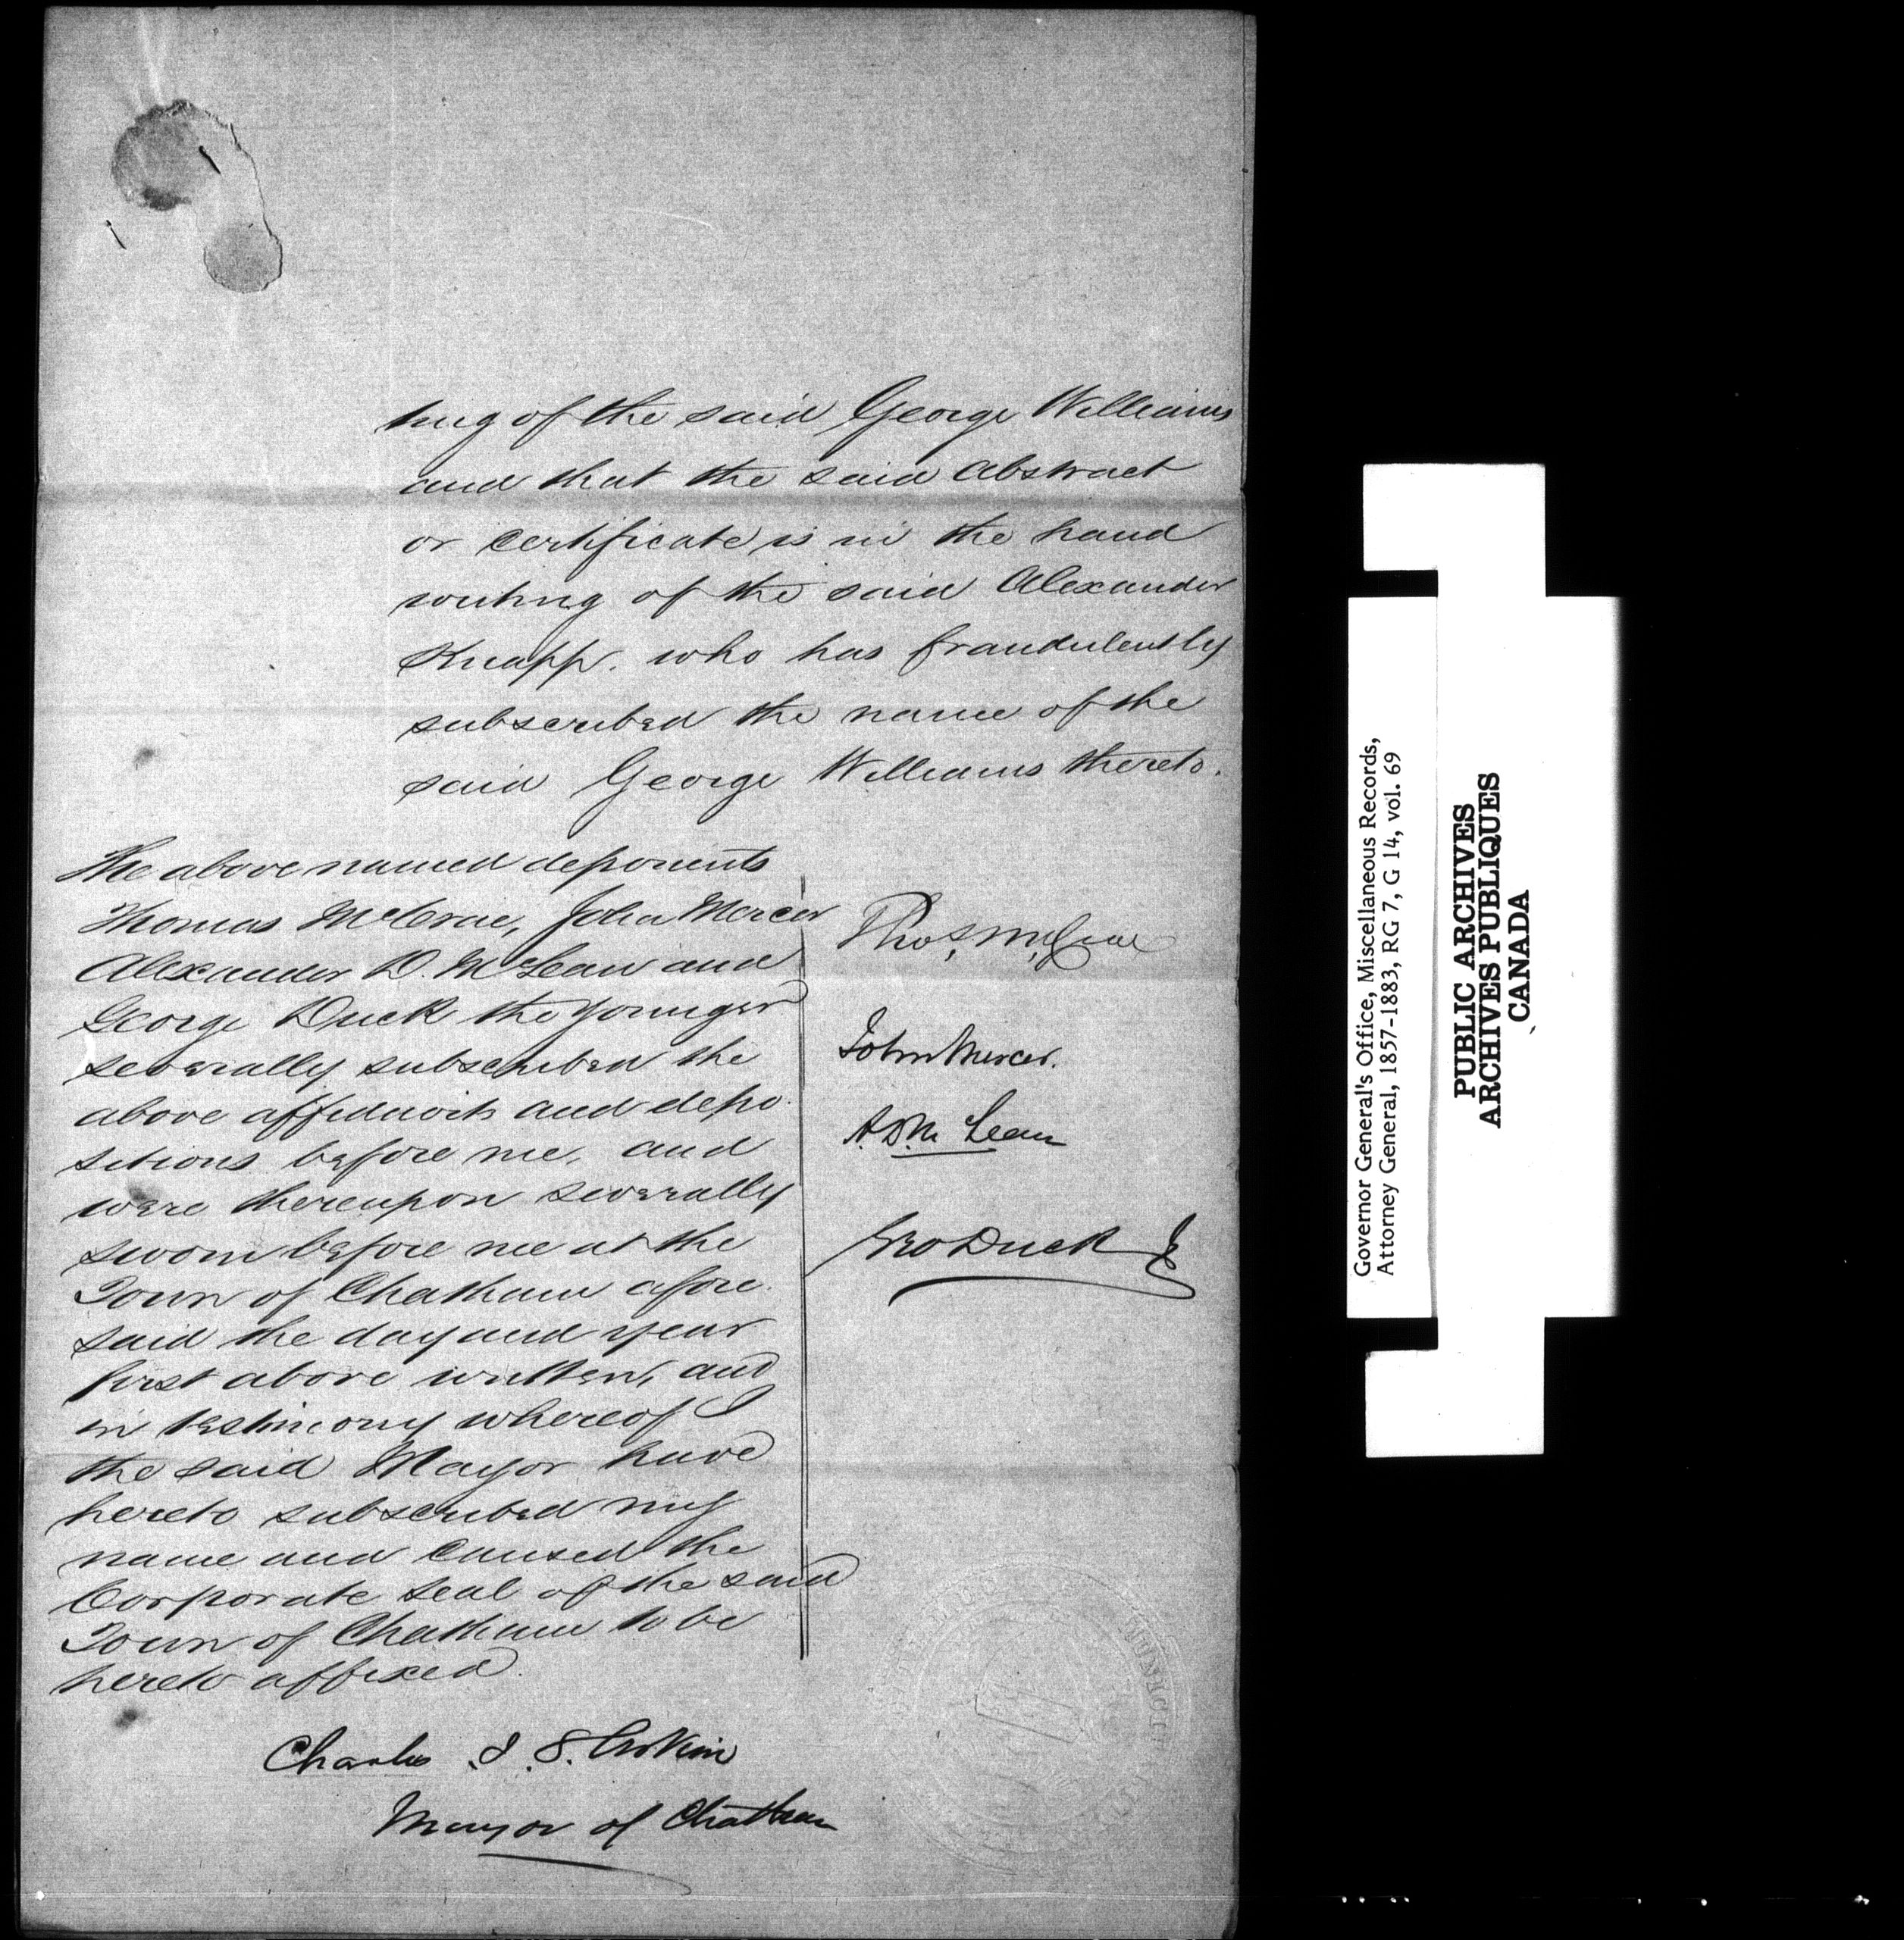 ting of the said George Williams
and that the said Abstract
or certificate is in the hand
writing of the said Alexander
Knapp. who has fraudulently
subscribed the name of the
said George Williams thereto.
The above named deponents
Thomas McCrae, John Mercer
Alexander D. McLean and
George Duck the Younger
severally subscribed the
above affidavits and depo-
sitions before me, and
were thereupon severally
sworn before me at the
Town of Chatham afore-
said the day and year
first above written, and
in testimony whereof I
the said Mayor have
hereto subscribed my
name and caused the
Corporate Seal of the said
Town of Chatham to be
hereto affixed.
Thos, McCrae
John Mercer.
A. D. McLean
Geo Duck Jr
Charles
Mayor of Chatham
Governor General's Office, Miscellaneous Records,
Attorney General, 1857-1883, RG 7, G 14, vol. 69
PUBLIC ARCHIVES
ARCHIVES PUBLIQUES
CANADA